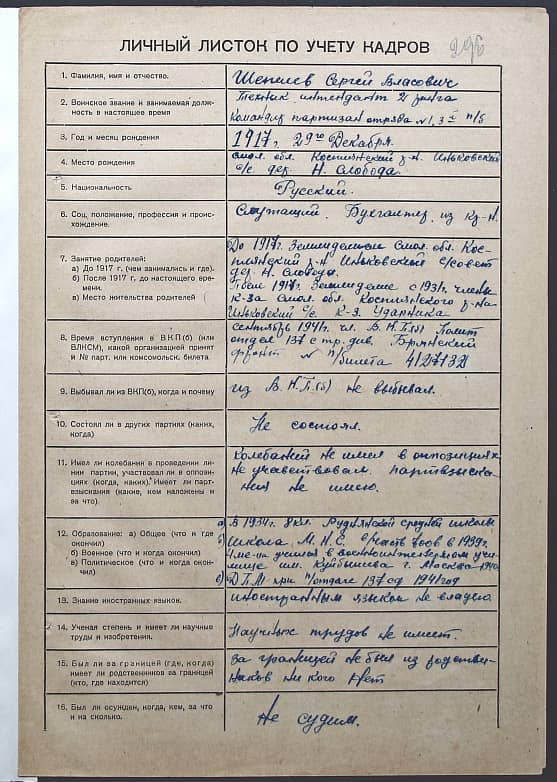 ЛИЧНЫЙ ЛИСТОК ПО УЧЕТУ КАДРОВ
1. Фамилия, имя и отчество.
Шепелев Сергей Власович
2. Воинское звание и занимаемая долж-
ность в настоящее время
Техник интендант 2 ранга
командир партизан отряда №1, 3
3. Год и месяц рождения
1917 г. 29го Декабря.
4. Место рождения
Смол. обл. Касплянский р-н. Иньковский
с/с дер. Н. Слобода.
5. Национальность
Русский.
6. Соц. положение, профессия и проис-
хождение.
Служащий. Бухгалтер, из кр-н.
7. Занятие родителей:
а) До 1917 г. (чем занимались и где).
б) После 1917 г. до настоящего вре-
мени.
в) Место жительства родителей
До 1917г. Земледелием Смол. обл. Кас-
плянский р-н Иньковский с/совет
дер. Н. Слобода.
1917г. Земледелие с 1931г. члены
к-за Смол. обл. Касплянского р-на
Иньковский с/с к-з. Ударника
8. Время вступления в ВКП(б) (или
ВЛКСМ), какой организацией принят
и № парт. или комсомольск. билета
сентябрь 1941г. чл. В.К.П.(б) Полит
отдел 137 стр. див. Брянский
фронт № п/билета 4127132
9. Выбывал ли из ВКП(б), когда и почему
из В.К.П.(б) не выбывал.
10. Состоял ли в других партиях (каких,
когда)
Не состоял.
11. Имел ли колебания в проведении ли-
нии партии, участвовал ли в оппози-
циях (когда, каких). Имеет ли парт-
взыскания (какие, кем наложены и
за что).
Колебаний не имел в оппозициях
не учавствовал. партвзыска-
ния не имею.
12. Образование: а) Общее (что и где
окончил)
б) Военное (что и когда окончил)
в) Политическое (что и когда окон-
чил)
а) В 1934г. 8 кл. Руднянской средней школы
б) Школа М.Н.С. в 1939г.
учился в военноинтендантском учи-
лище им. Куйбышева г. Москва 1940
в) Д.П.М при п/отделе 137 сд 1941 год
13. Знание иностранных языков.
иностранным языком не владею
14. Ученая степень и имеет ли научные
труды и изобретения.
Научных трудов не имеет.
15. Был ли за границей (где, когда)
имеет ли родственников за границей
(кто, где находится)
за границей не был из родствен-
ников никого нет
16. Был ли осужден, когда, кем, за что
и на сколько.
не судим.